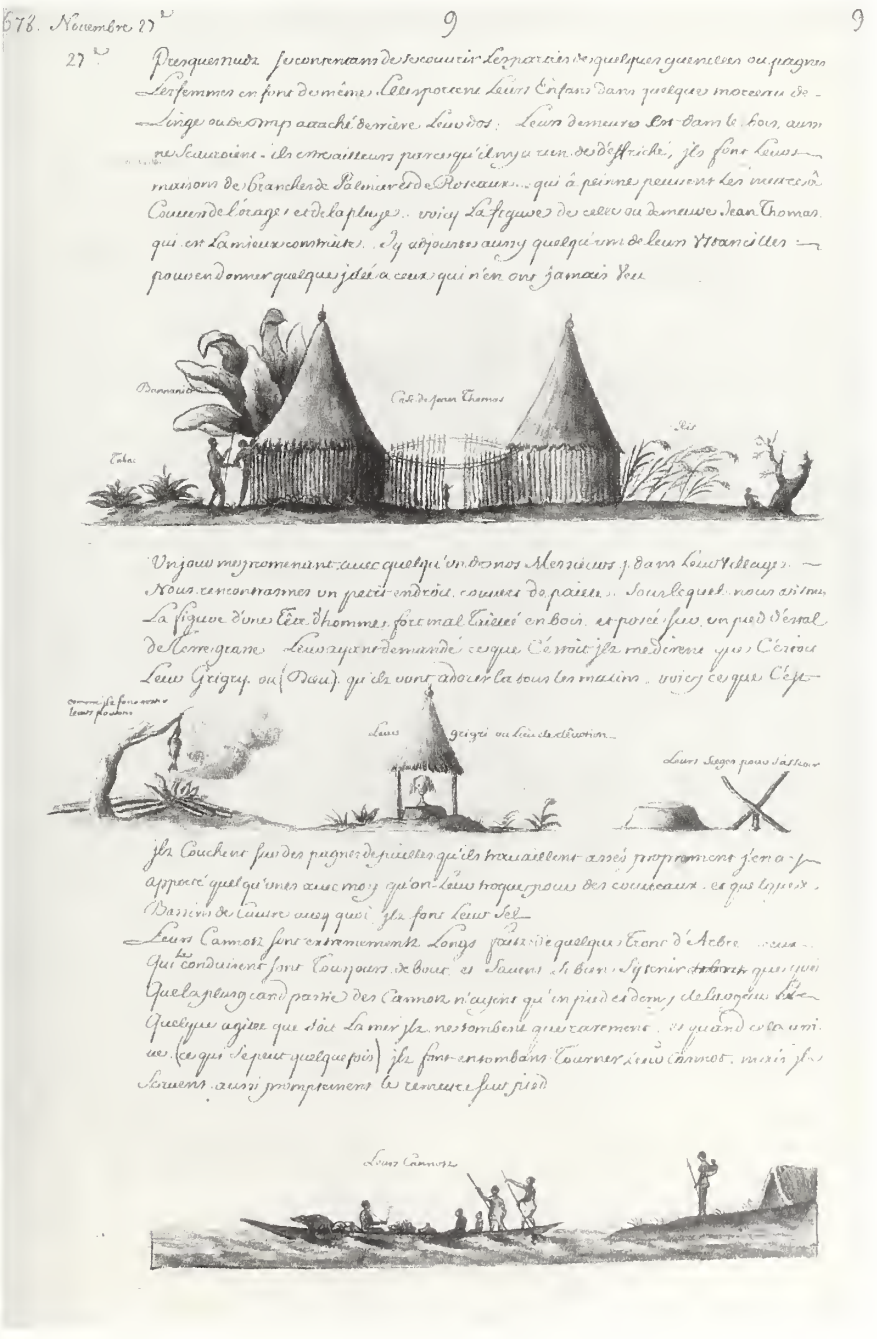 678. Novembre 27e 9 9
27e. Presque nudz se contentans de se couvrir Les parties de quelques guenilles ou pagnes
Les femmes en font de même. Elles portent Leurs Enfans dans quelque morceau de
Linge ou attaché derriere Leur dos; Leurs demeures Est dans le bois, aussi
ne Scauroient-ils estre ailleurs parce qu'il n'y a rien de deffriché, jlz font Leurs
maisons de branches de Palmier et de Roseaux qui à peinne peuvent Les mettre à
Couvert de l'orage et de la pluye. voicy La figure de celle ou demeure Jean Thomas
qui est La mieux construite. J'y adjouste aussy quelqu'uns de leurs Ustancilles
pour en donner quelque jdeé a ceux qui n'en ont jamais Veu
Bannanier
Case de Jean Thomas
Ris
Tabac
Un jour me promenant avec quelqu'un de nos Messieurs dans Leur Village
Nous rencontrasmes un petit endroit couvert de paille. Sous lequel nous vismes
La figure d'une Tête d'hommes fort mal Tailleé en bois, et poseé sur un pied d'estal
de Terre grasse Leur ayant demandé ce que C'estoit jlz me dirent que C'estoit
Leur Grigry ou (Dieu) qu'ilz vont adorer la tous les matins, voicy ce que C'est
comme jlz font rostir
leurs poissons
Leur grigri ou Lieu de devotion
Leurs Sieges pour s'asseoir
jlz Couchent sur des pagnes de pailles qu'ils travaillent assés proprement j'en a
apporté quelqu'unes avec moy qu'on Leur troque pour des couteaux, et
Bassins de Cuivre avec quoi jlz font Leur Sel
Leurs Cannotz sont extremementz Longs faitz de quelque Tronc d'Arbre ceux
Qui les conduisent sont Tousjours de bout et Savent si bien s'y tenir que quoi
Que la plus grand partie des Cannotz n'ayent qu'un pied et demy de largeur
Quelque agiteé que soit La mer jlz ne tombent que rarement, et quand cela arri
ve (ce qui se peut quelque fois) jlz font en tombant Tourner Leur Cannot, mais jlz
Savent aussi promptement le remettre sur pied
Leurs Cannotz